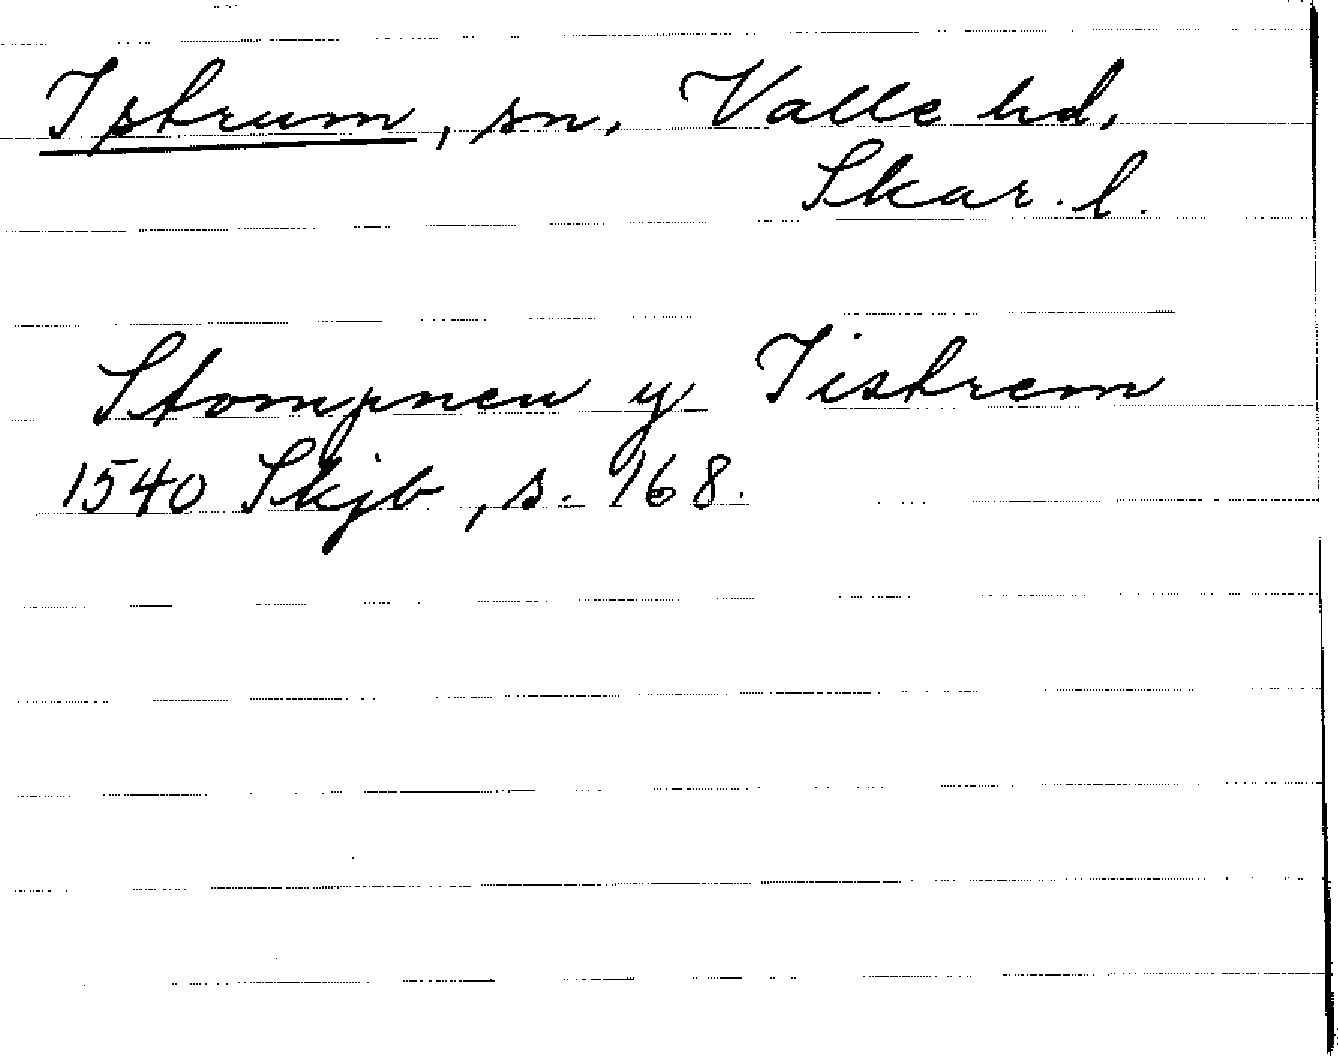 Istrum, sn. Valle hd,
Skar. l.
Stompnen y Tistrem
1540 Skjb, s. 168.